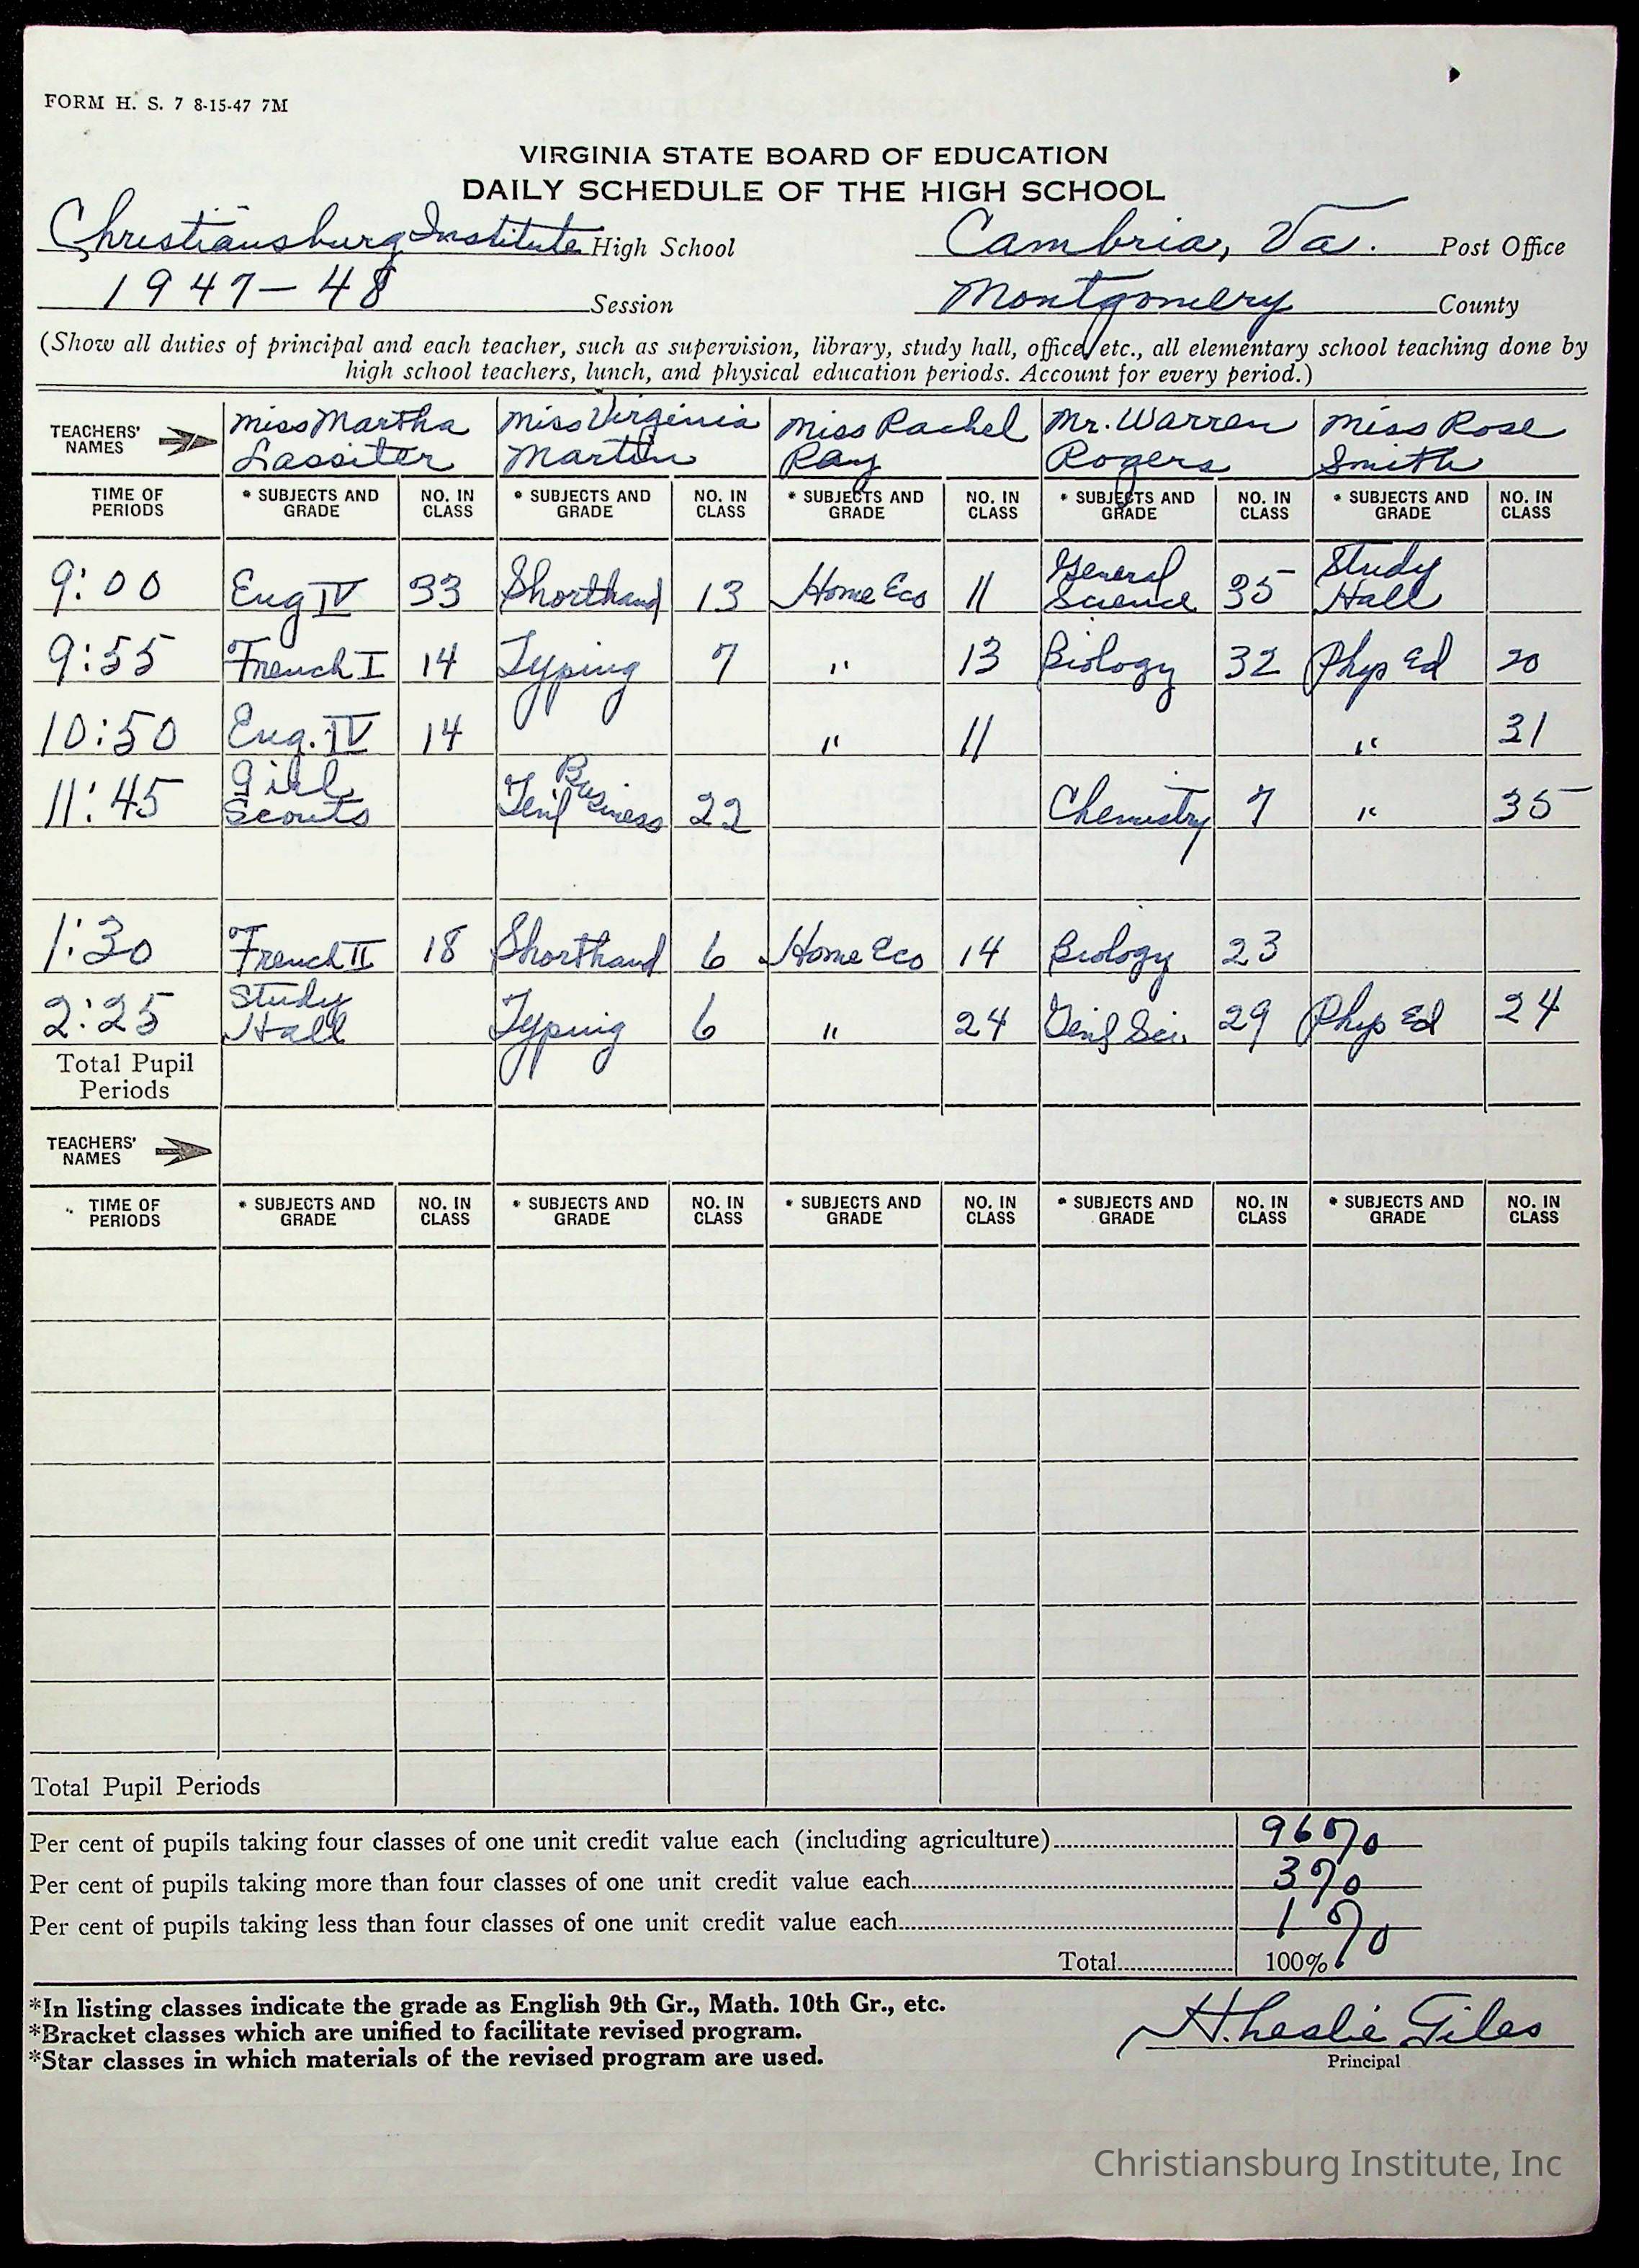 FORM H. S. 7 8-15-47 7M
VIRGINIA STATE BOARD OF EDUCATION
DAILY SCHEDULE OF THE HIGH SCHOOL
Christiansburg Institute High School Cambria, Va. Post Office
1947-48 Session Montgomery County
(Show all duties of principal and each teacher, such as supervision, library, study hall, office, etc., all elementary school teaching done by
high school teachers, lunch, and physical education periods. Account for every period.)
TEACHERS' NAMES Miss Martha Lassiter Miss Virginia Martin Miss Rachel Ray Mr. Warren Rogers Miss Rose Smith
TIME OF PERIODS * SUBJECTS AND GRADE NO. IN CLASS * SUBJECTS AND GRADE NO. IN CLASS * SUBJECTS AND GRADE NO. IN CLASS * SUBJECTS AND GRADE NO. IN CLASS * SUBJECTS AND GRADE NO. IN CLASS
9:00 Eng IV 33 Shorthand 13 Home Eco 11 General Science 35 Study Hall
9:55 French I 14 Typing 7 " 13 Biology 32 Phys Ed 20
10:50 Eng. IV 14 " 11 " 31
11:45 Girl Scouts Gen'l Business 22 Chemistry 7 " 35
1:30 French II 18 Shorthand 6 Home Eco 14 Biology 23
2:25 Study Hall Typing 6 " 24 Gen'l Sci. 29 Phys Ed 24
Total Pupil Periods
TEACHERS' NAMES
TIME OF PERIODS * SUBJECTS AND GRADE NO. IN CLASS * SUBJECTS AND GRADE NO. IN CLASS * SUBJECTS AND GRADE NO. IN CLASS * SUBJECTS AND GRADE NO. IN CLASS * SUBJECTS AND GRADE NO. IN CLASS
Total Pupil Periods
Per cent of pupils taking four classes of one unit credit value each (including agriculture) 96%
Per cent of pupils taking more than four classes of one unit credit value each 3%
Per cent of pupils taking less than four classes of one unit credit value each 1%
Total 100%
*In listing classes indicate the grade as English 9th Gr., Math. 10th Gr., etc.
*Bracket classes which are unified to facilitate revised program.
*Star classes in which materials of the revised program are used.
H. Leslie Giles
Principal
Christiansburg Institute, Inc